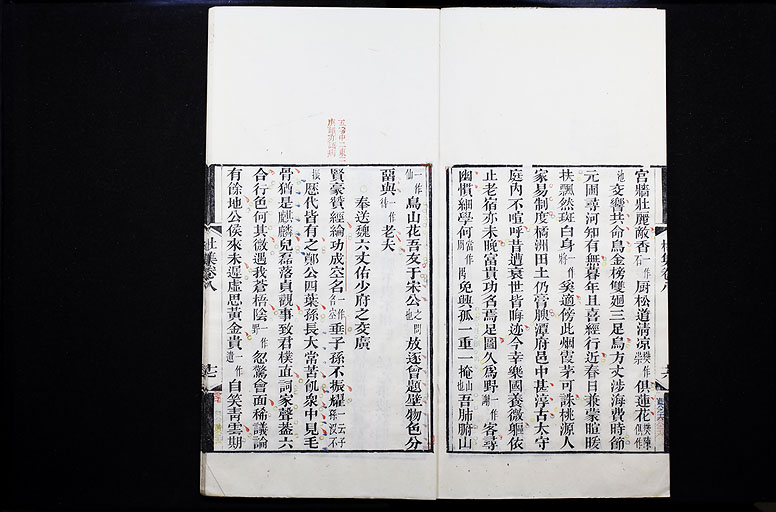 宮牆壯麗敵香一作石廚松道清涼樊作崇俱蓮花樊陳俱作
池交響共命鳥金榜雙迴三足烏方丈涉海費時節
元圃尋河知有無暮年且喜經行近春日兼蒙暄暖
扶飄然斑白身一作將奚適傍此烟霞茅可誅桃源人
家易制度橘洲田土仍膏腴潭府邑中甚淳古太守
庭內不喧呼昔遭衰世皆晦迹今幸樂國養微軀依
止老宿亦未晚富貴功名焉足圖久為野一作謝客尋
幽慣細學何當作周作興免興孤一重一掩山也吾肺腑山
仙一作鳥山花吾友于宋公之問也放逐曾題壁物色分
留與一作待老夫
奉送魏六丈佑少府之交廣
賢豪贊經綸功成空名一作名空垂子孫不振耀一云子孫沒不
振歷代皆有之鄭公四葉孫長大常苦飢眾中見毛
骨猶是麒麟兒磊落貞觀事致君樸直詞家聲蓋六
合行色何其微遇我蒼梧陰一作野忽驚會面稀議論
有餘地公侯來未遲虛思黃金貴一作遺自笑青雲期
杜集卷八